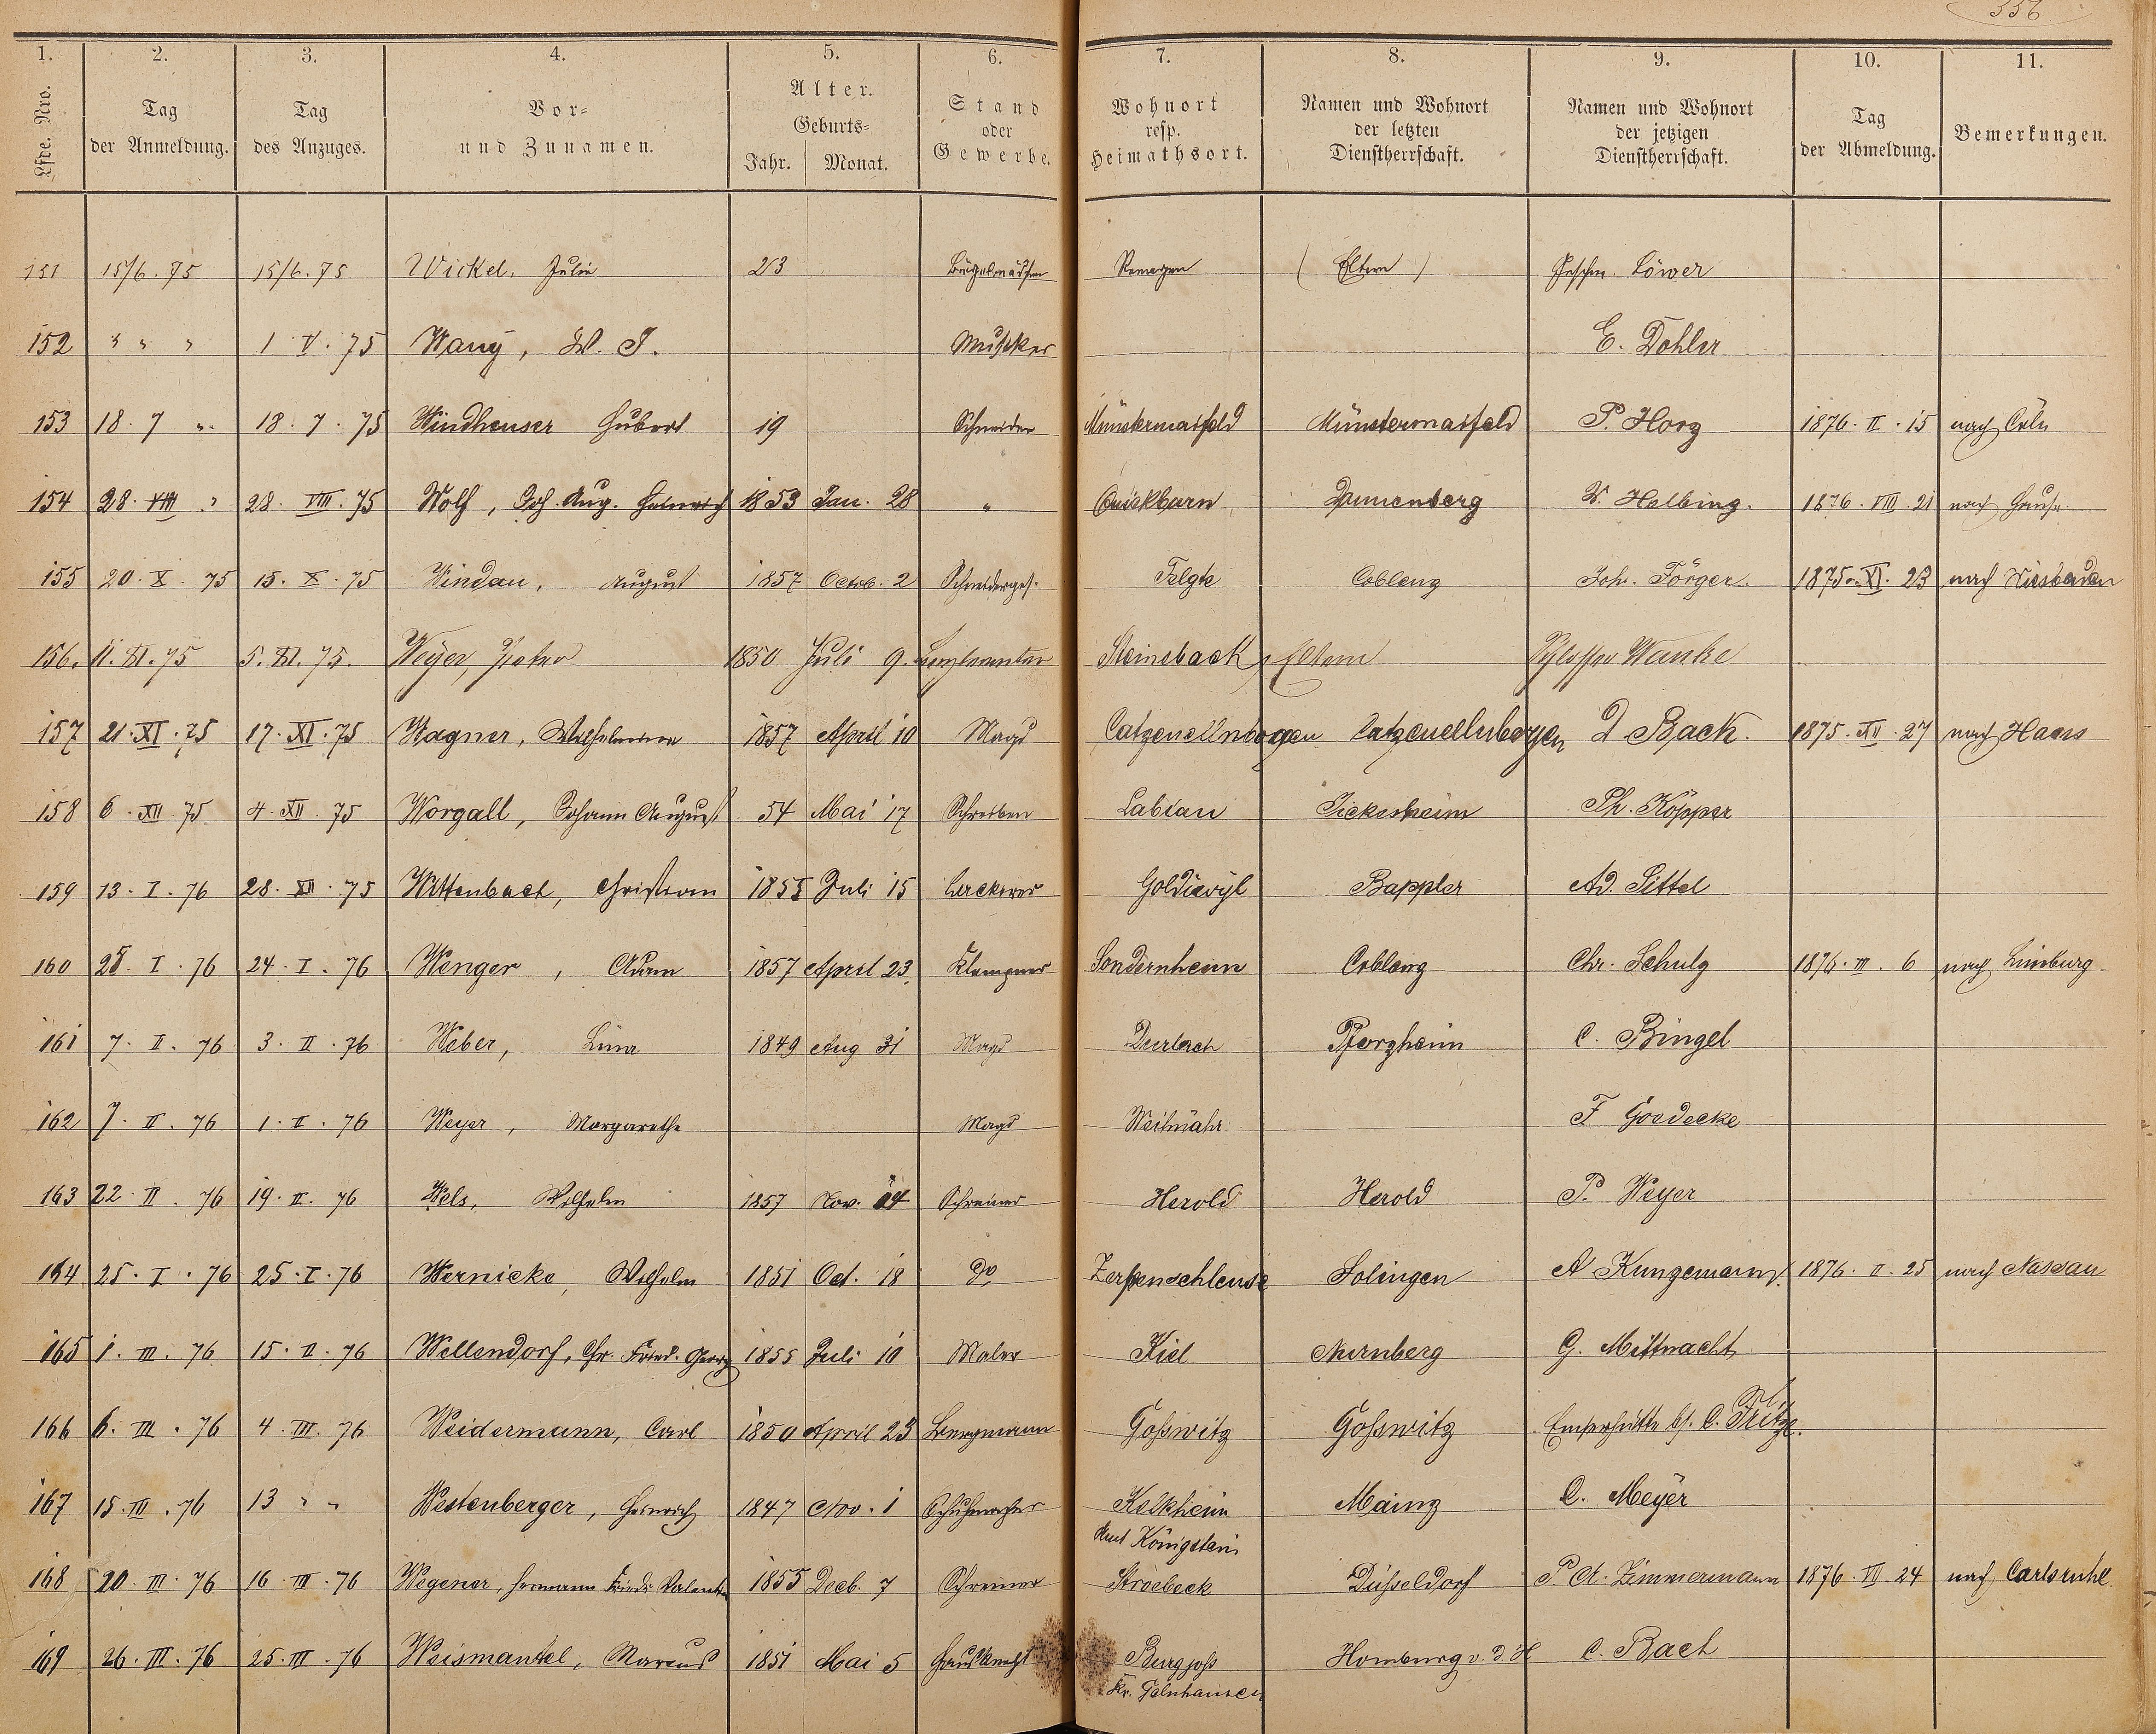 556
1. 2. 3. 4. 5. 6. 7. 8. 9. 10. 11.
Lfde. Nro. Tag der Anmeldung. Tag des Anzuges. Vor- und Zunamen. Alter. Geburts- Jahr. Monat. Stand oder Gewerbe. Wohnort resp. Heimathsort. Namen und Wohnort der letzten Dienstherrschaft. Namen und Wohnort der jetzigen Dienstherrschaft. Tag der Abmeldung. Bemerkungen.
151 15/6. 75 15/6. 75 Wickel, Julie 23 Bügelmädchen Remagen (Eltern) Geschw. Löwer
152 " " " 1. V. 75 Wany, W. J. Musiker E. Dohler
153 18. 7 " 18. 7. 75 Windheuser Hubert 19 Schneider Münstermaifeld Münstermaifeld P. Horg 1876. II. 15 nach Cöln
154 28. VIII " 28. VIII. 75 Wolf, Joh. Aug. Heinrich 1853 Jan. 28 " Quickborn Dannenberg W. Helbing. 1876. VIII. 21 nach Hause
155 20. X. 75 15. X. 75 Windau, August 1857 Octob. 2 Schneiderges. Telgte Coblenz Joh. Törger. 1875. XI. 23 nach Wiesbaden
156. 11. XI. 75 5. XI. 75. Weyer, Peter 1850 Juli 9. Steinsback Eltern Schlosser Wanke
157 21. XI. 75 17. XI. 75 Wagner, Wilhelmine 1857 April 10 Magd Catzenellnbogen Catzenellnbogen J Back. 1875. XII. 27 nach Haus
158 6. XII. 75 4. XII. 75 Worgall, Johann August 54 Mai 17 Schreiber Labiau Ph. Köpper
159 13. I. 76 28. XII. 75 Wittenbach, Christian 1855 Juli 15 Lackirer Goldiwyl Bappler Ad. Sittel
160 25. I. 76 24. I. 76 Wenger, Adam 1857 April 23. Klempner Sondernheim Coblenz Chr. Schulz 1876. III. 6 nach Limburg
161 7. II. 76 3. II. 76 Weber, Lina 1849 Aug 31 Magd Durlach Pforzheim C. Bingel
162 7. II. 76 1. II. 76 Weyer, Margarethe Magd Weihmähr F Goedecke
163 22. II. 76 19. II. 76 Wels, Wilhelm 1857 Nov. 14 Schreiner Herold Herold P. Weyer
164 25. I. 76 25. I. 76 Wernicke, Wilhelm 1851 Oct. 18 do Zerpenschleuse Solingen A Kunzemann. 1876. II. 25 nach Nassau
165 1. III. 76 15. II. 76 Wellendorf, Chr. Fried. Georg 1855 Juli 10 Maler Kiel Nürnberg G. Mittnacht
166 6. III. 76 4. III. 76 Weidermann, Carl 1850 April 23 Bergmann Goßwitz Goßwitz Emserhütte bs. C. Fritze.
167 15. III. 76 13 " " Westenberger, Heinrich 1847 Nov. 1 Schuhmacher Kelkheim Amt Königstein Mainz C. Meyer
168 20. III. 76 16. III. 76 Wegener, Hermann Friedr. Valentin 1855 Decb. 7 Schreiner Stroebeck Düsseldorf P. A. Zimmermann 1876. VI. 24 nach Carlsruhe
169 26. III. 76 25. III. 76 Weismantel, Marcus 1851 Mai 5 Hausknecht Burgjoss Kr. Gelnhausen Homburg v. d. H C. Bach